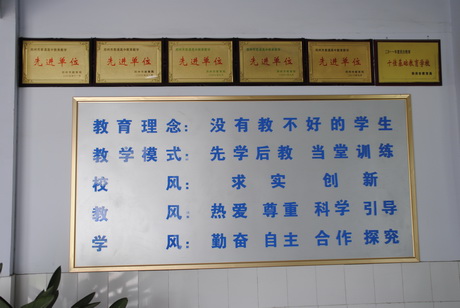 先进单位
先进单位
先进单位
先进单位
先进单位
十佳基础教育学校
教育理念：没有教不好的学生
教学模式：先学后教 当堂训练
校风：求实 创新
教风：热爱 尊重 科学 引导
学风：勤奋 自主 合作 探究